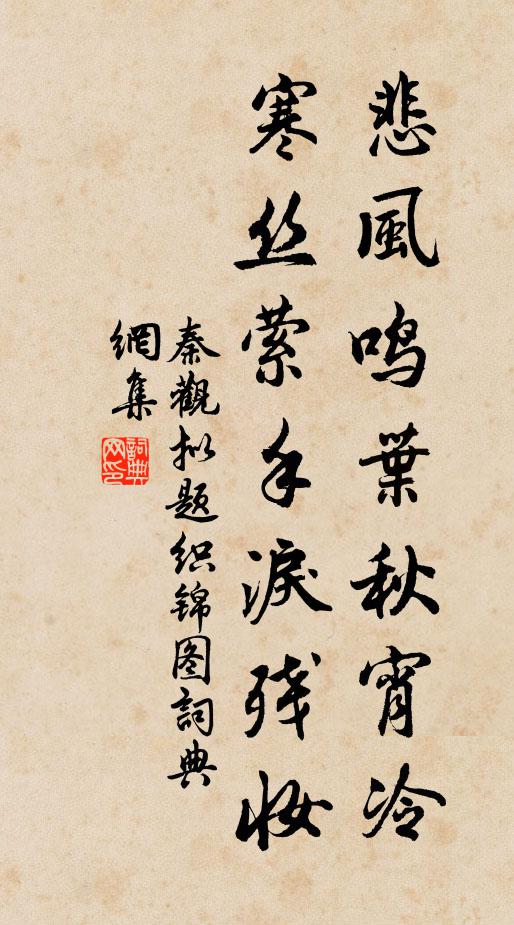 悲風鸣葉秋宵冷
寒丝萦手淚残妆
秦觀拟题织锦图詞典
網集
詞典网印